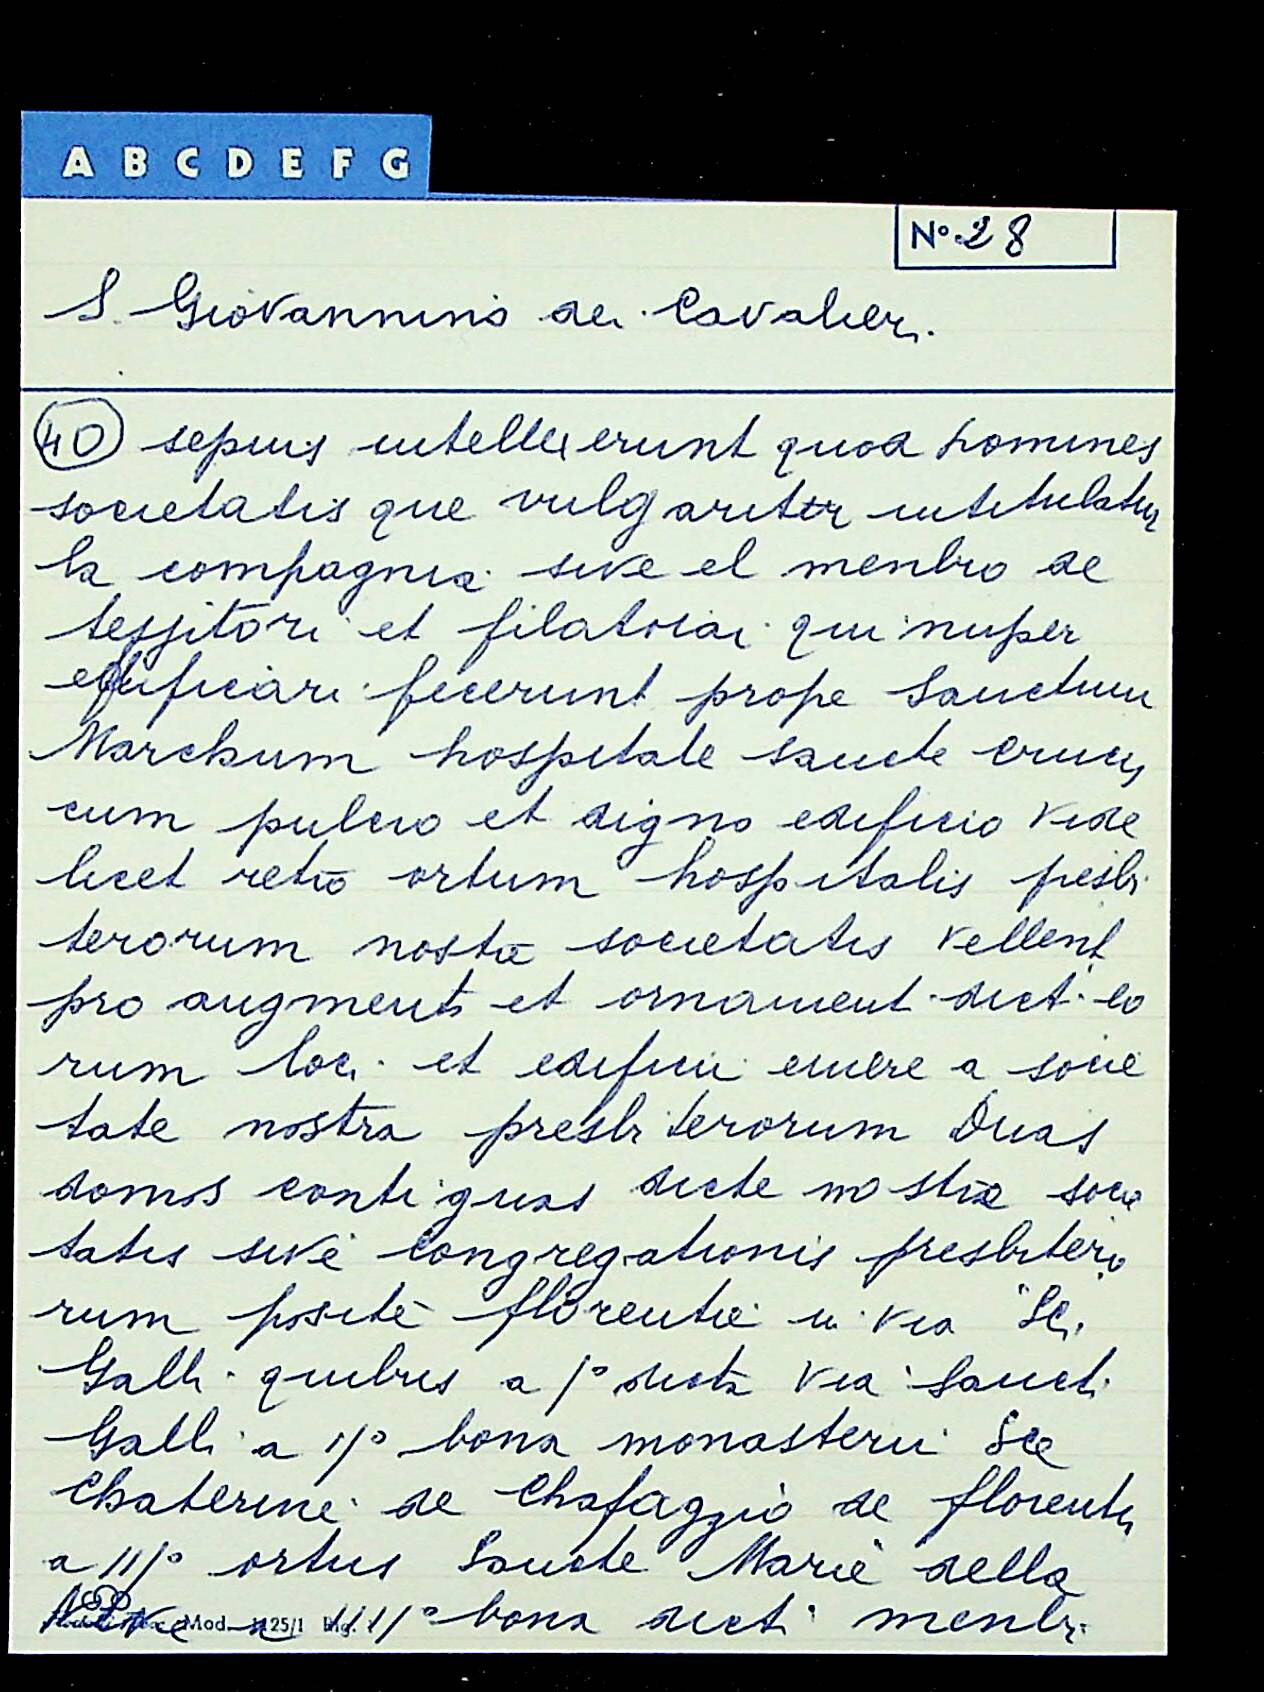 A B C D E F G
No. 28
S. Giovannino dei Cavalieri.
40 sepius intellexerunt quod homines
societatis que vulgariter intitulatur
la compagnia sive el menbro de
tessitori et filatoiai qui nuper
edificiari fecerunt prope Sanctum
Marchum hospitale sancte crucis
cum pulcro et digno edificio vide
licet retro ortum hospitalis presbi
terorum nostre societatis vellent
pro augmento et ornament. dict. eo
rum loci et edificii emere a socie
tate nostra presbiterorum Duas
domos contiguas dicte nostre socie
tatis sive congregationis presbitero
rum posite florentie in via Sci.
Galli quibus a 1° dicta via Sancti
Galli a 11° bona monasterii Sce
Chaterine de Chafaggio de florentia
a 111° ortus Sancte Marie della
Neve a 1111° bona dicti menbri
Mod. 125/1